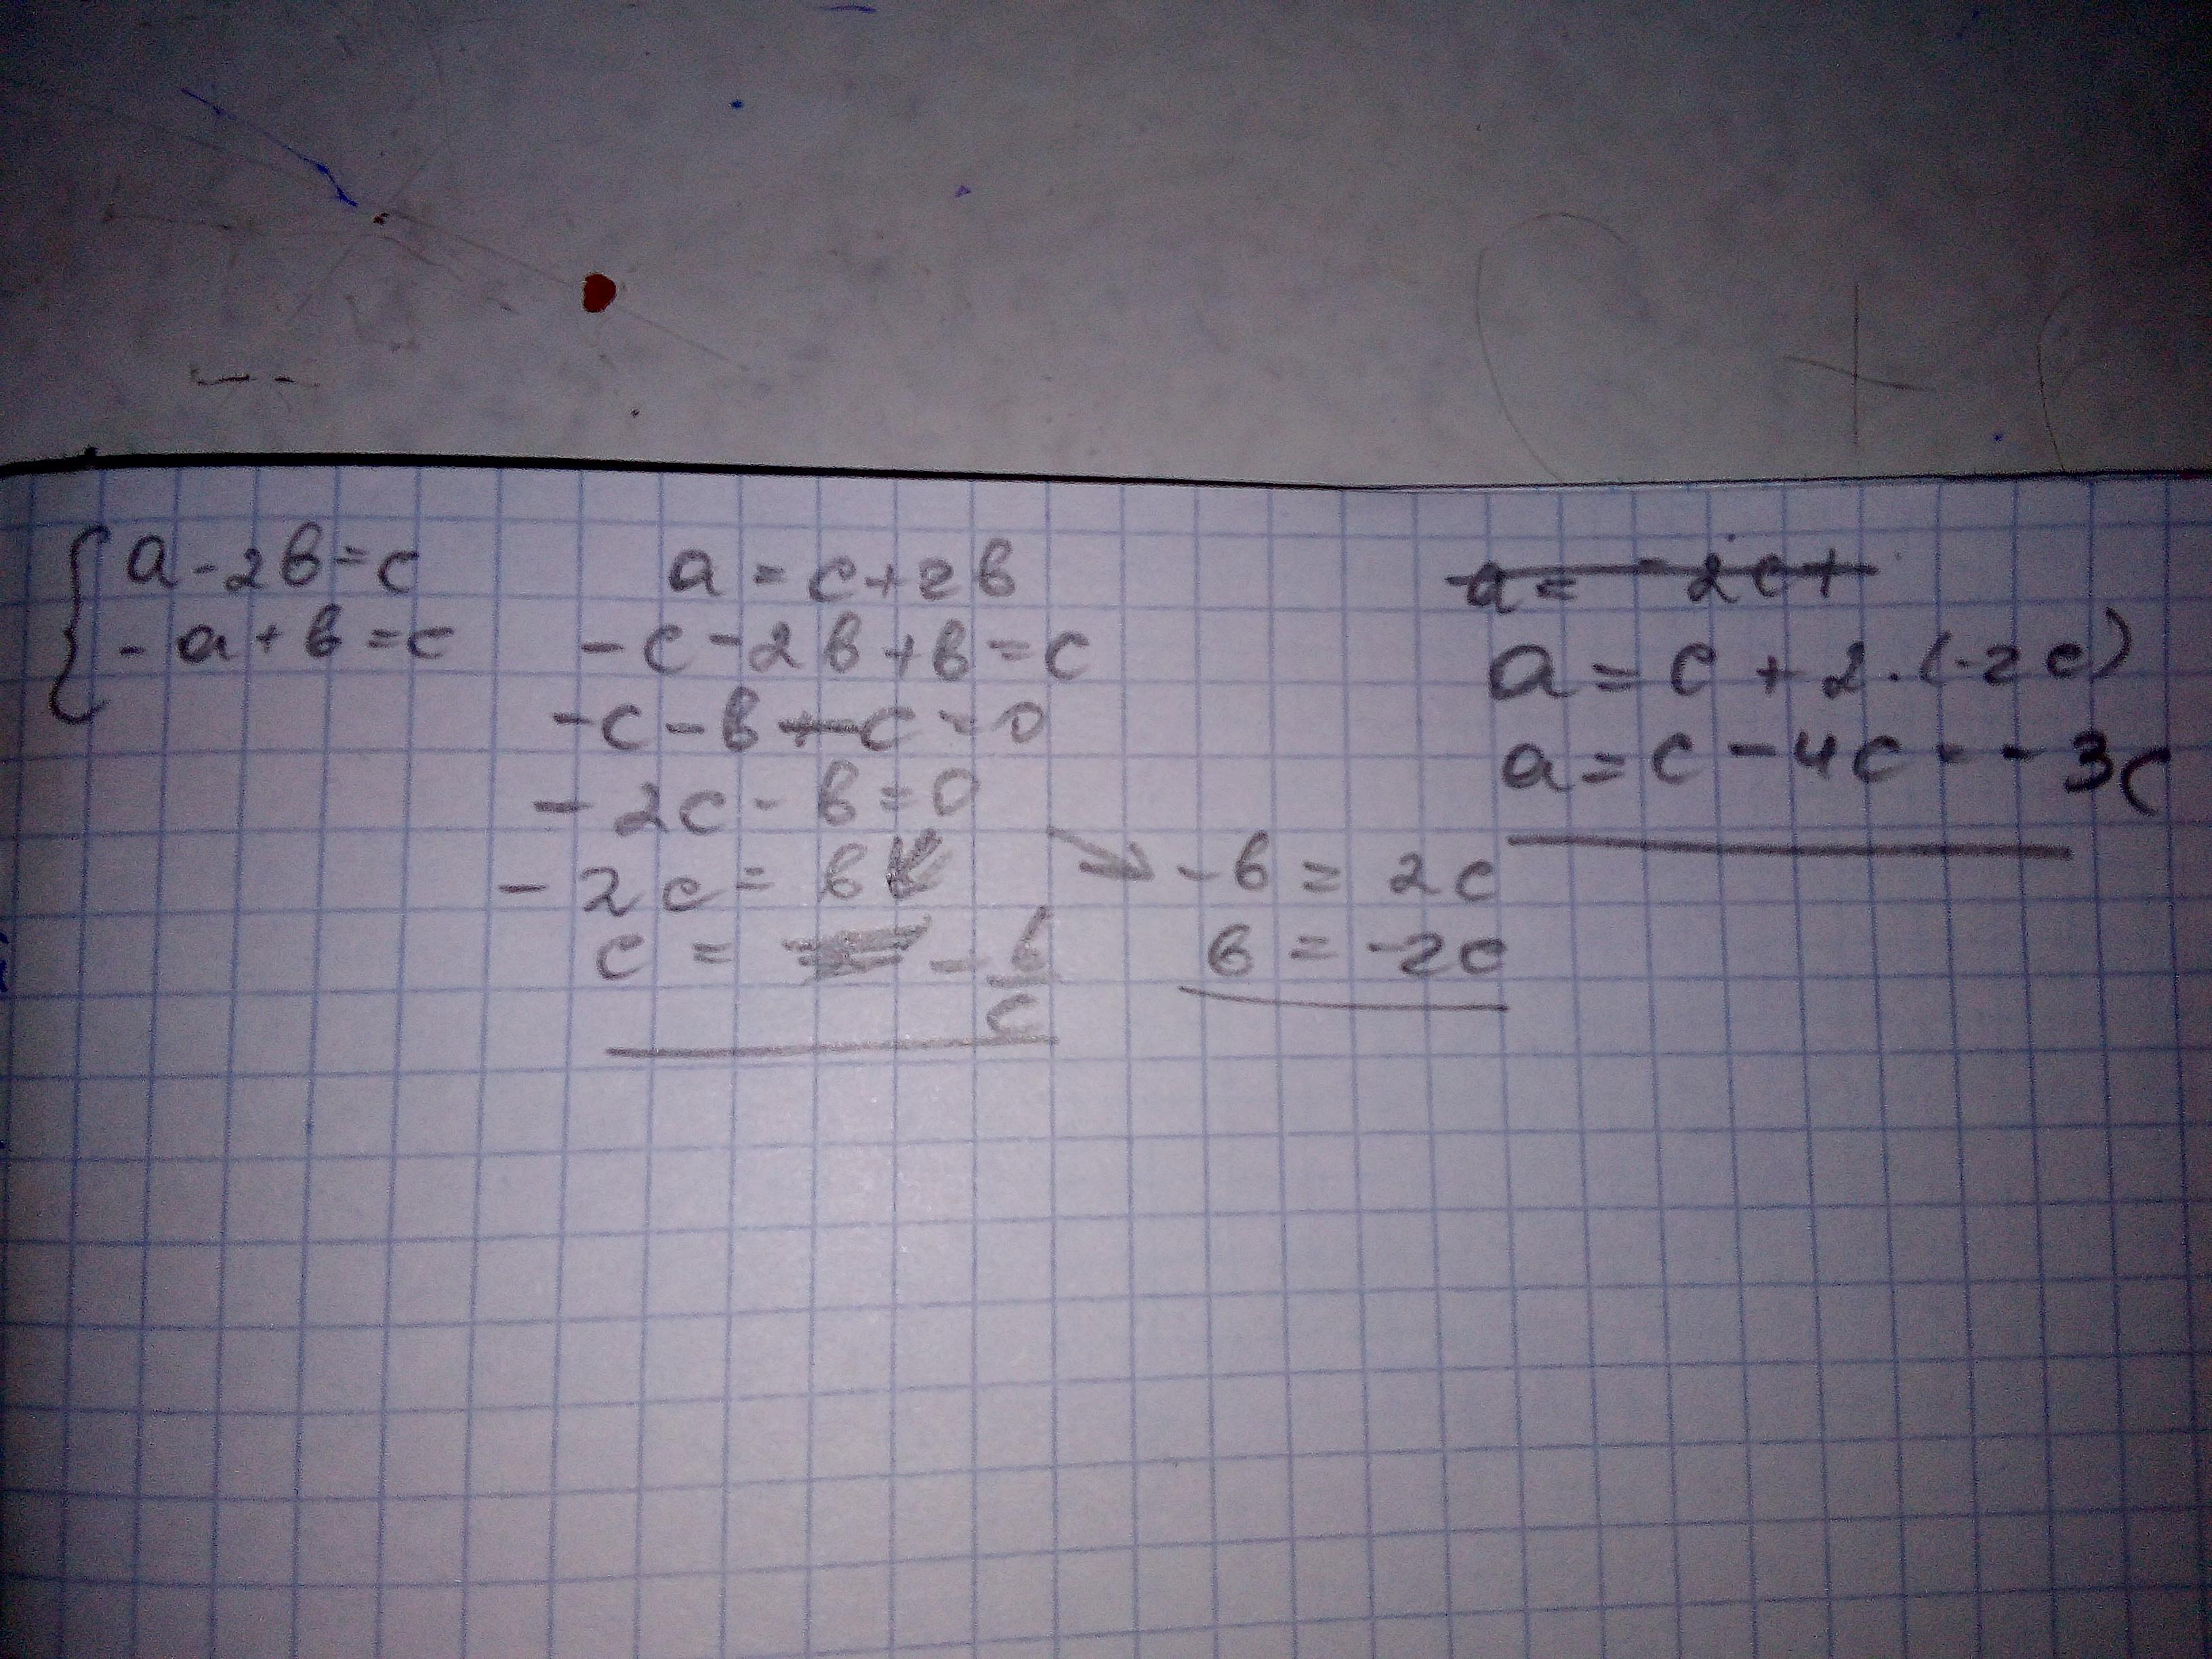 a - 2b = c
- a + b = c
a = c + 2b
- c - 2b + b = c
- c - b + - c = 0
- 2c - b = 0
- 2c = b
c = - b/c
- b = 2c
b = -2c
a = - 2c +
a = c + 2 · (-2c)
a = c - 4c = - 3c